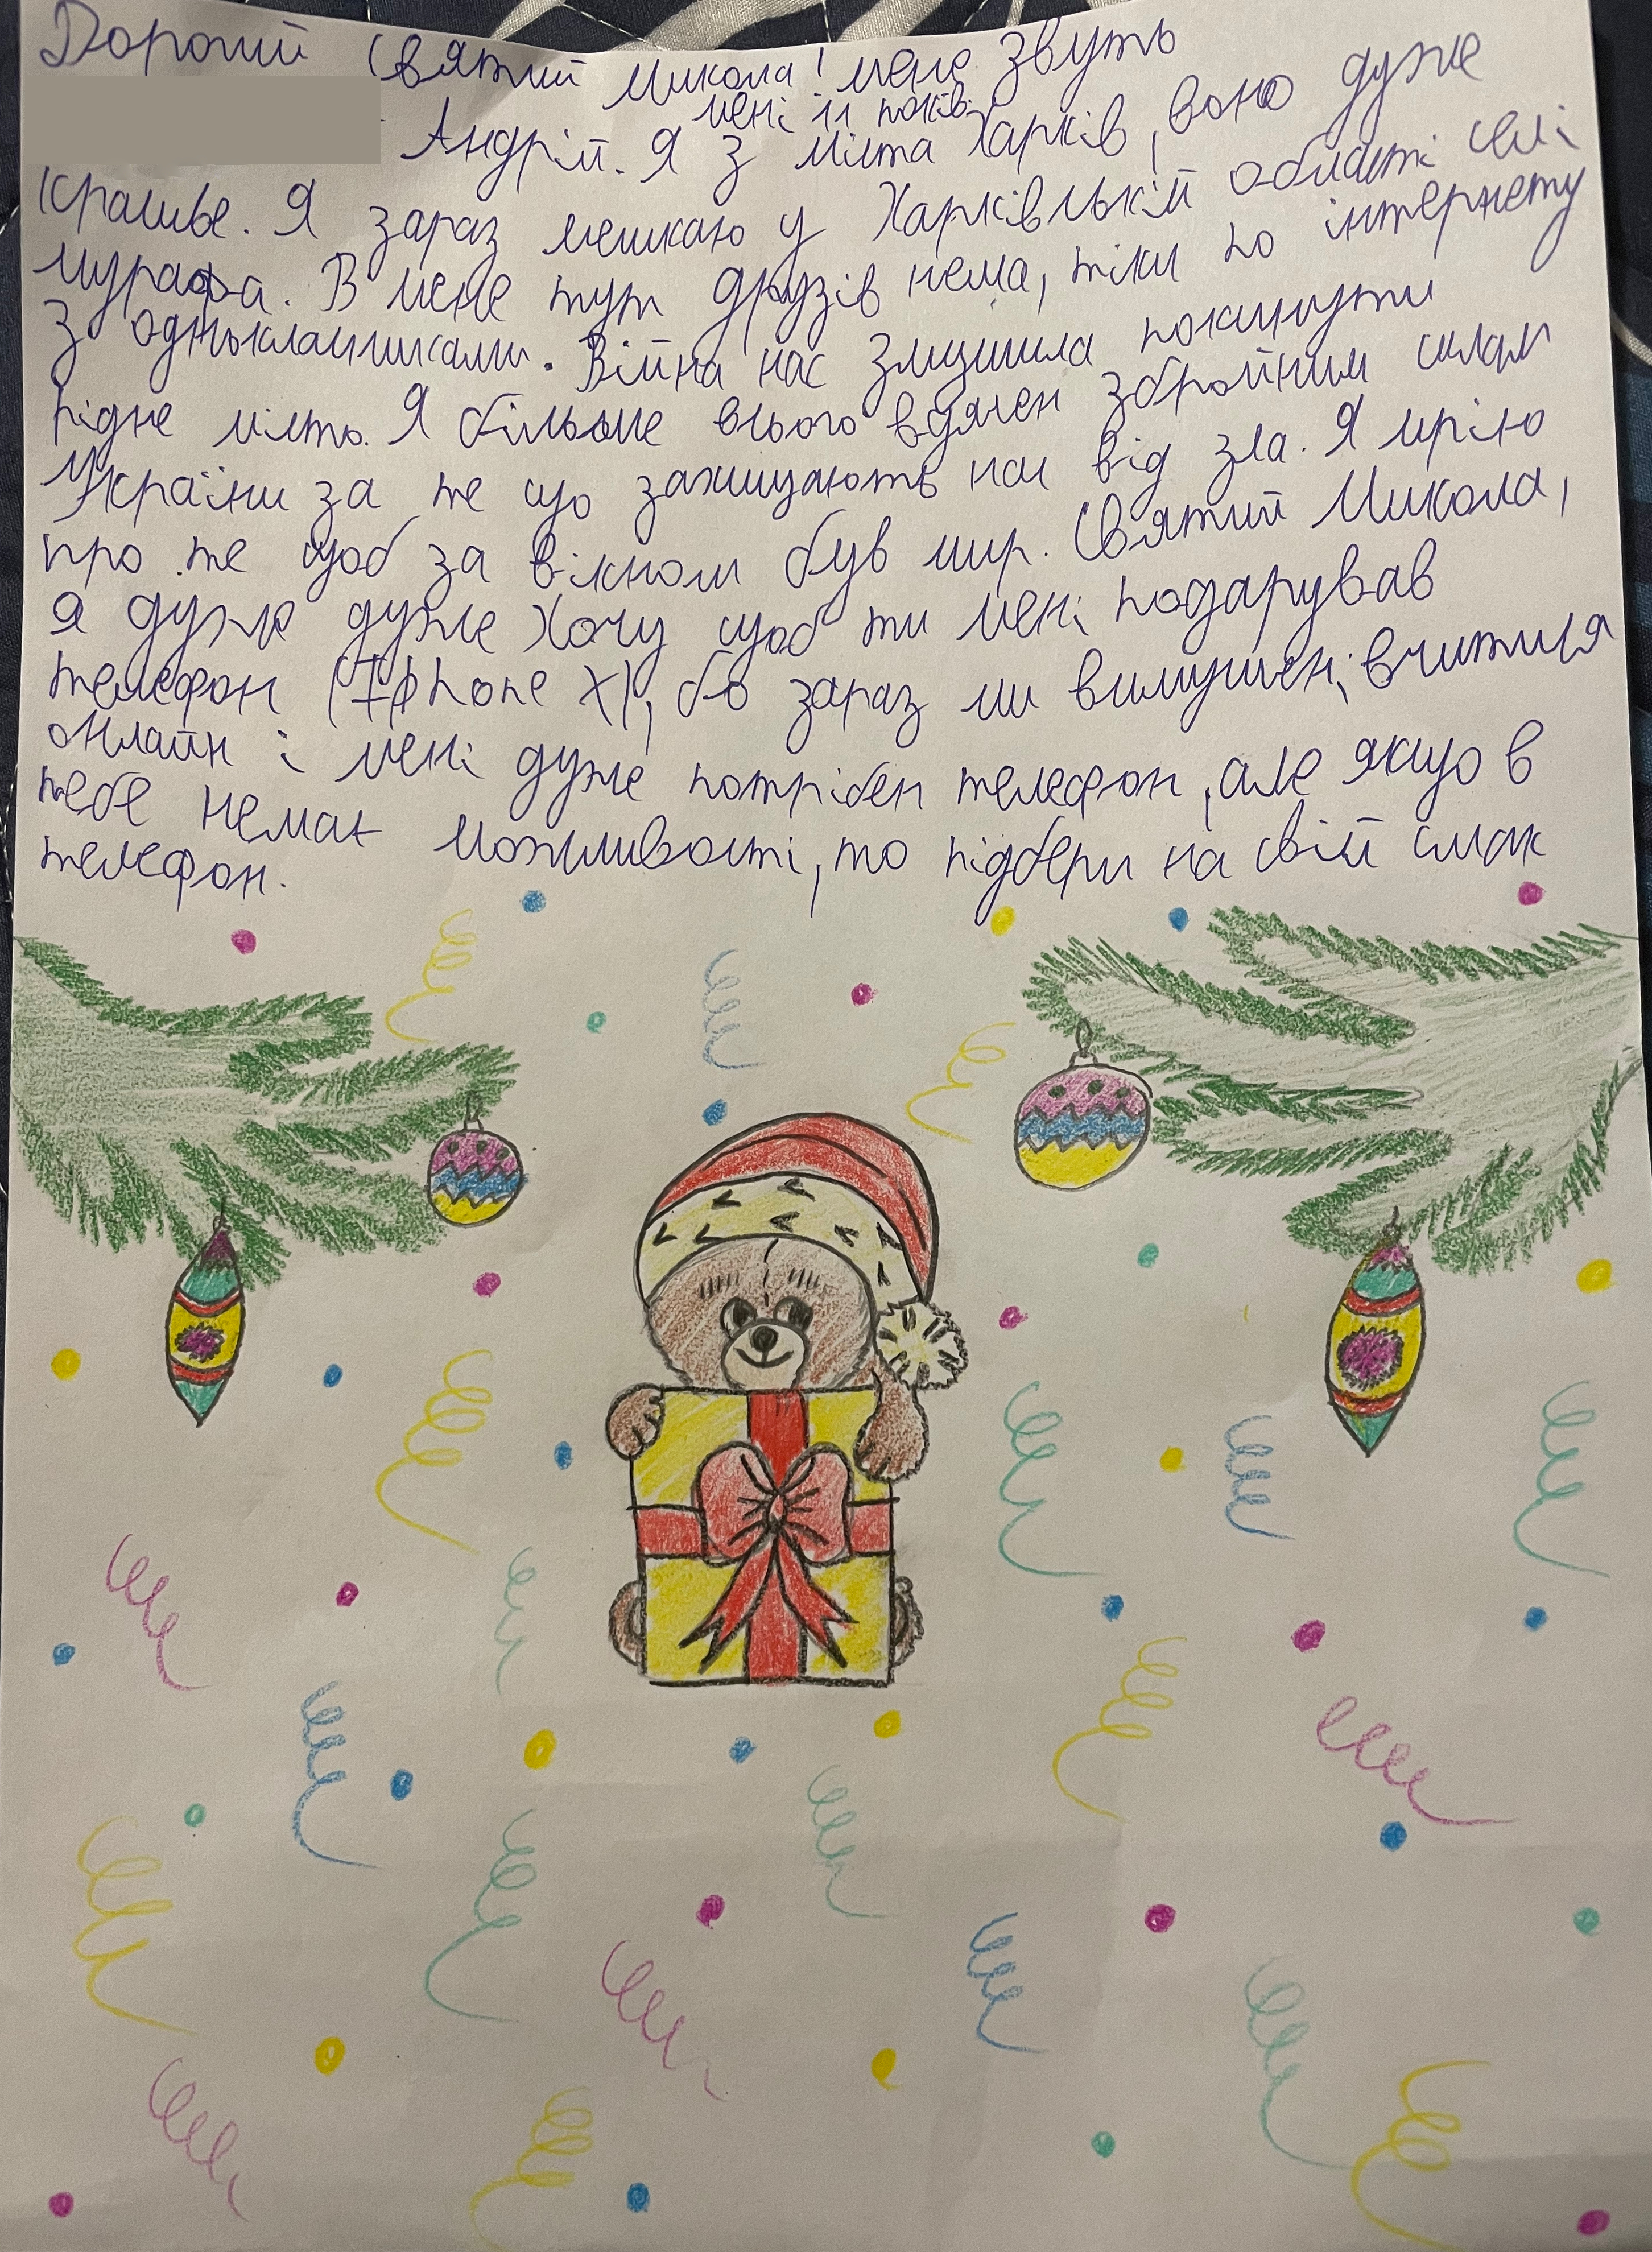 Дорогий Святий Микола! мене звуть
Андрій. мені 11 років. Я з міста Харків, воно дуже
красиве. Я зараз мешкаю у Харківській області селі
мурафа. В мене тут друзів нема, тіки по інтернету
з однокласниками. Війна нас змушила покинути
рідне місто. Я більше всього вдячен збройним силам
України за те що захищають нас від зла. Я мрію
про те щоб за вікном був мир. Святий Микола,
я дуже дуже хочу щоб ти мені подарував
телефон (IPhone X), бо зараз ми вимушені вчитися
онлайн і мені дуже потрібен телефон, але якщо в
тебе немає можливості, то підбери на свій смак
телефон.